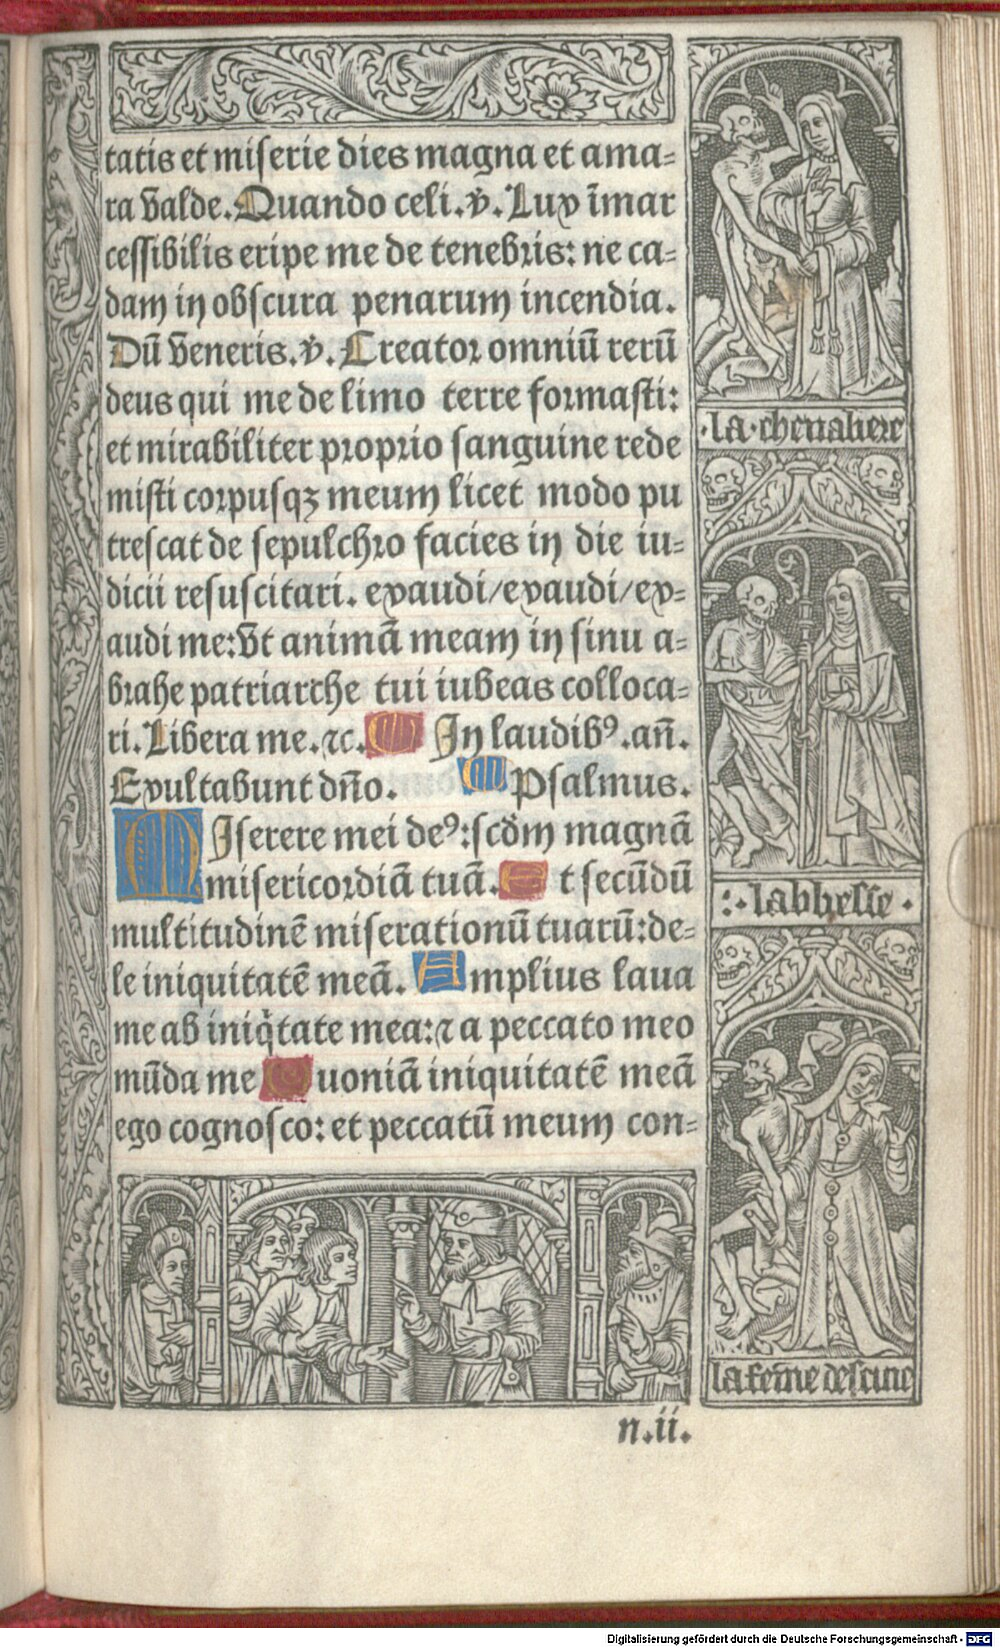 tatis et miserie dies magna et ama=
ra valde. Quando celi. v̾. Lux īmar
cessibilis eripe me de tenebris: ne ca=
dam in obscura penarum incendia.
Dū veneris. v̾. Creator omniū rerū
deus qui me de limo terre formasti:
et mirabiliter proprio sanguine rede
misti corpusqꝫ meum licet modo pu
trescat de sepulchro facies in die iu=
dicii resuscitari. exaudi/exaudi/ex=
audi me: vt animā meam in sinu a=
brahe patriarche tui iubeas colloca=
ri. Libera me. ⁊c. In laudibꝰ. an̄.
Exultabunt dn̄o. Psalmus.
MIserere mei deꝰ: scd̄m magnā
misericordiā tuā. Et secūdū
multitudinē miserationū tuarū: de=
le iniquitatē meā. Amplius laua
me ab iniq̇tate mea: ⁊ a peccato meo
mūda me Quoniā iniquitatē meā
ego cognosco: et peccatū meum con=
n.ii.
·la·cheualiere
:·labbesse·
la fēme descuie
Digitalisierung gefördert durch die Deutsche Forschungsgemeinschaft - DFG